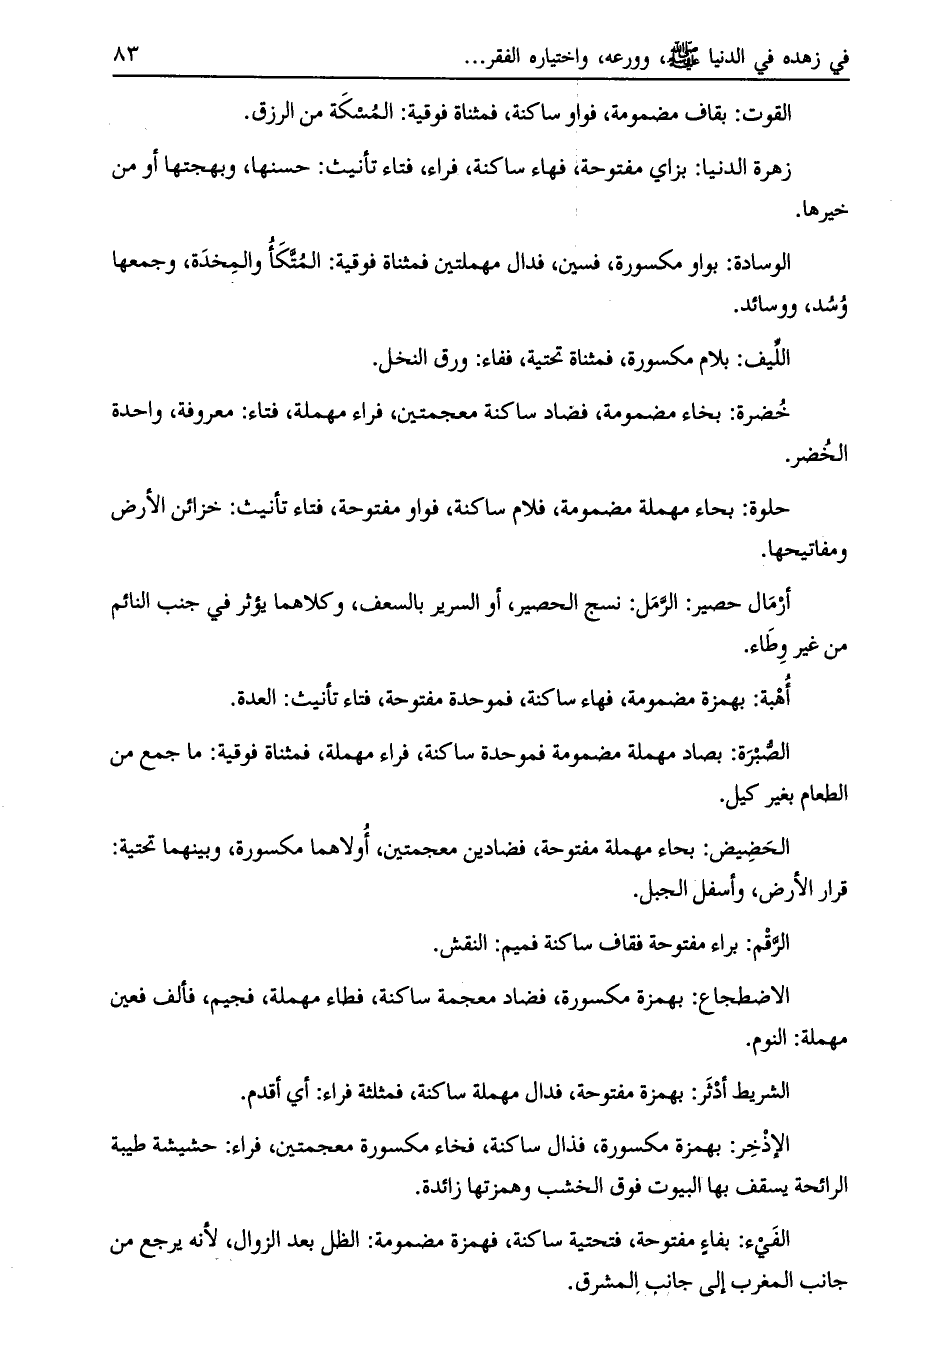 في زهده في الدنيا ﷺ، وورعه، واختياره الفقر... ٨٣
القوت: بقاف مضمومة، فواو ساكنة، فمثناة فوقية: المُسْكَة من الرزق.
زهرة الدنيا: بزاي مفتوحة، فهاء ساكنة، فراء، فتاء تأنيث: حسنها، وبهجتها أو من
خيرها.
الوسادة: بواو مكسورة، فسين، فدال مهملتين فمثناة فوقية: المُتَّكَأُ والمِخدَة، وجمعها
وُسُد، ووسائد.
اللِّيف: بلام مكسورة، فمثناة تحتية، ففاء: ورق النخل.
خُضرة: بخاء مضمومة، فضاد ساكنة معجمتين، فراء مهملة، فتاء: معروفة، واحدة
الخُضر.
حلوة: بحاء مهملة مضمومة، فلام ساكنة، فواو مفتوحة، فتاء تأنيث: خزائن الأرض
ومفاتيحها.
أرْمَال حصير: الرَّمَل: نسج الحصير، أو السرير بالسعف، وكلاهما يؤثر في جنب النائم
من غير وِطَاء.
أُهْبة: بهمزة مضمومة، فهاء ساكنة، فموحدة مفتوحة، فتاء تأنيث: العدة.
الصُّبْرَة: بصاد مهملة مضمومة فموحدة ساكنة، فراء مهملة، فمثناة فوقية: ما جمع من
الطعام بغير كيل.
الحَضِيض: بحاء مهملة مفتوحة، فضادين معجمتين، أُولاهما مكسورة، وبينهما تحتية:
قرار الأرض، وأسفل الجبل.
الرَّقْم: براء مفتوحة فقاف ساكنة فميم: النقش.
الاضطجاع: بهمزة مكسورة، فضاد معجمة ساكنة، فطاء مهملة، فجيم، فألف فعين
مهملة: النوم.
الشريط أدْثَر: بهمزة مفتوحة، فدال مهملة ساكنة، فمثلثة فراء: أي أقدم.
الإذْخِر: بهمزة مكسورة، فذال ساكنة، فخاء مكسورة معجمتين، فراء: حشيشة طيبة
الرائحة يسقف بها البيوت فوق الخشب وهمزتها زائدة.
الفَيْء: بفاءٍ مفتوحة، فتحتية ساكنة، فهمزة مضمومة: الظل بعد الزوال، لأنه يرجع من
جانب المغرب إلى جانب المشرق.